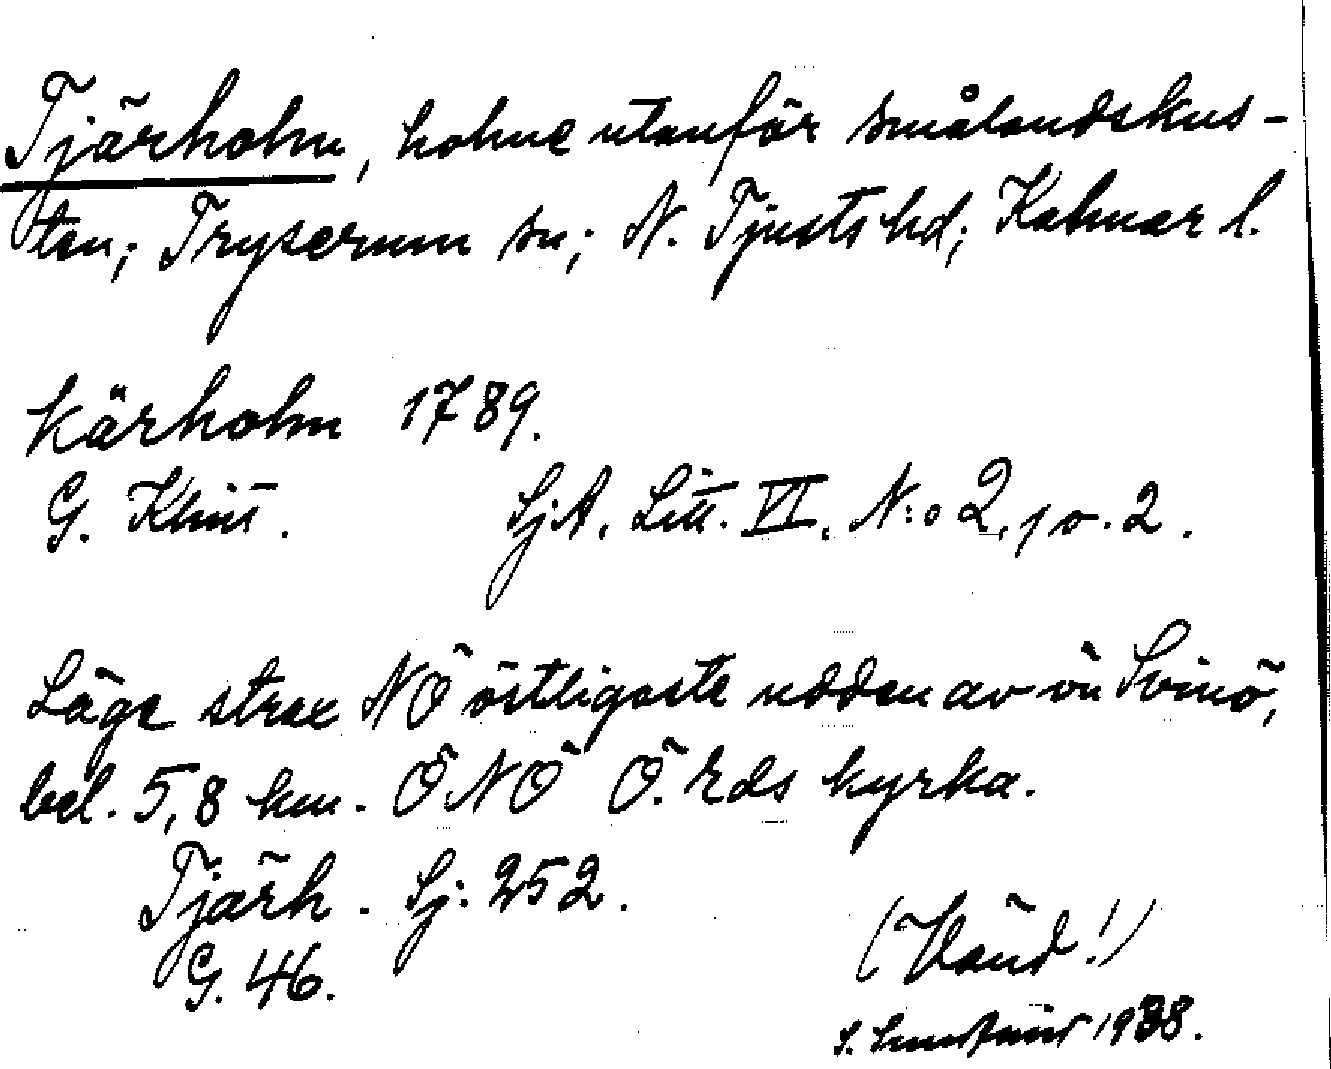 Tjärholm, holme utanför smålandskus-
ten; Tryserum sn; N. Tjusts hd; Kalmar l.
Kärholm 1789.
G. Klint. SjA, Litt. VI, N:o 2, p. 2.
Läge strax NÖ östligaste udden av ön Svinö,
bel. 5,8 km. ÖNÖ Ö. Eds kyrka.
Tjärh. Sj. 252.
G. 46.
(Vänd!)
S. 1938.